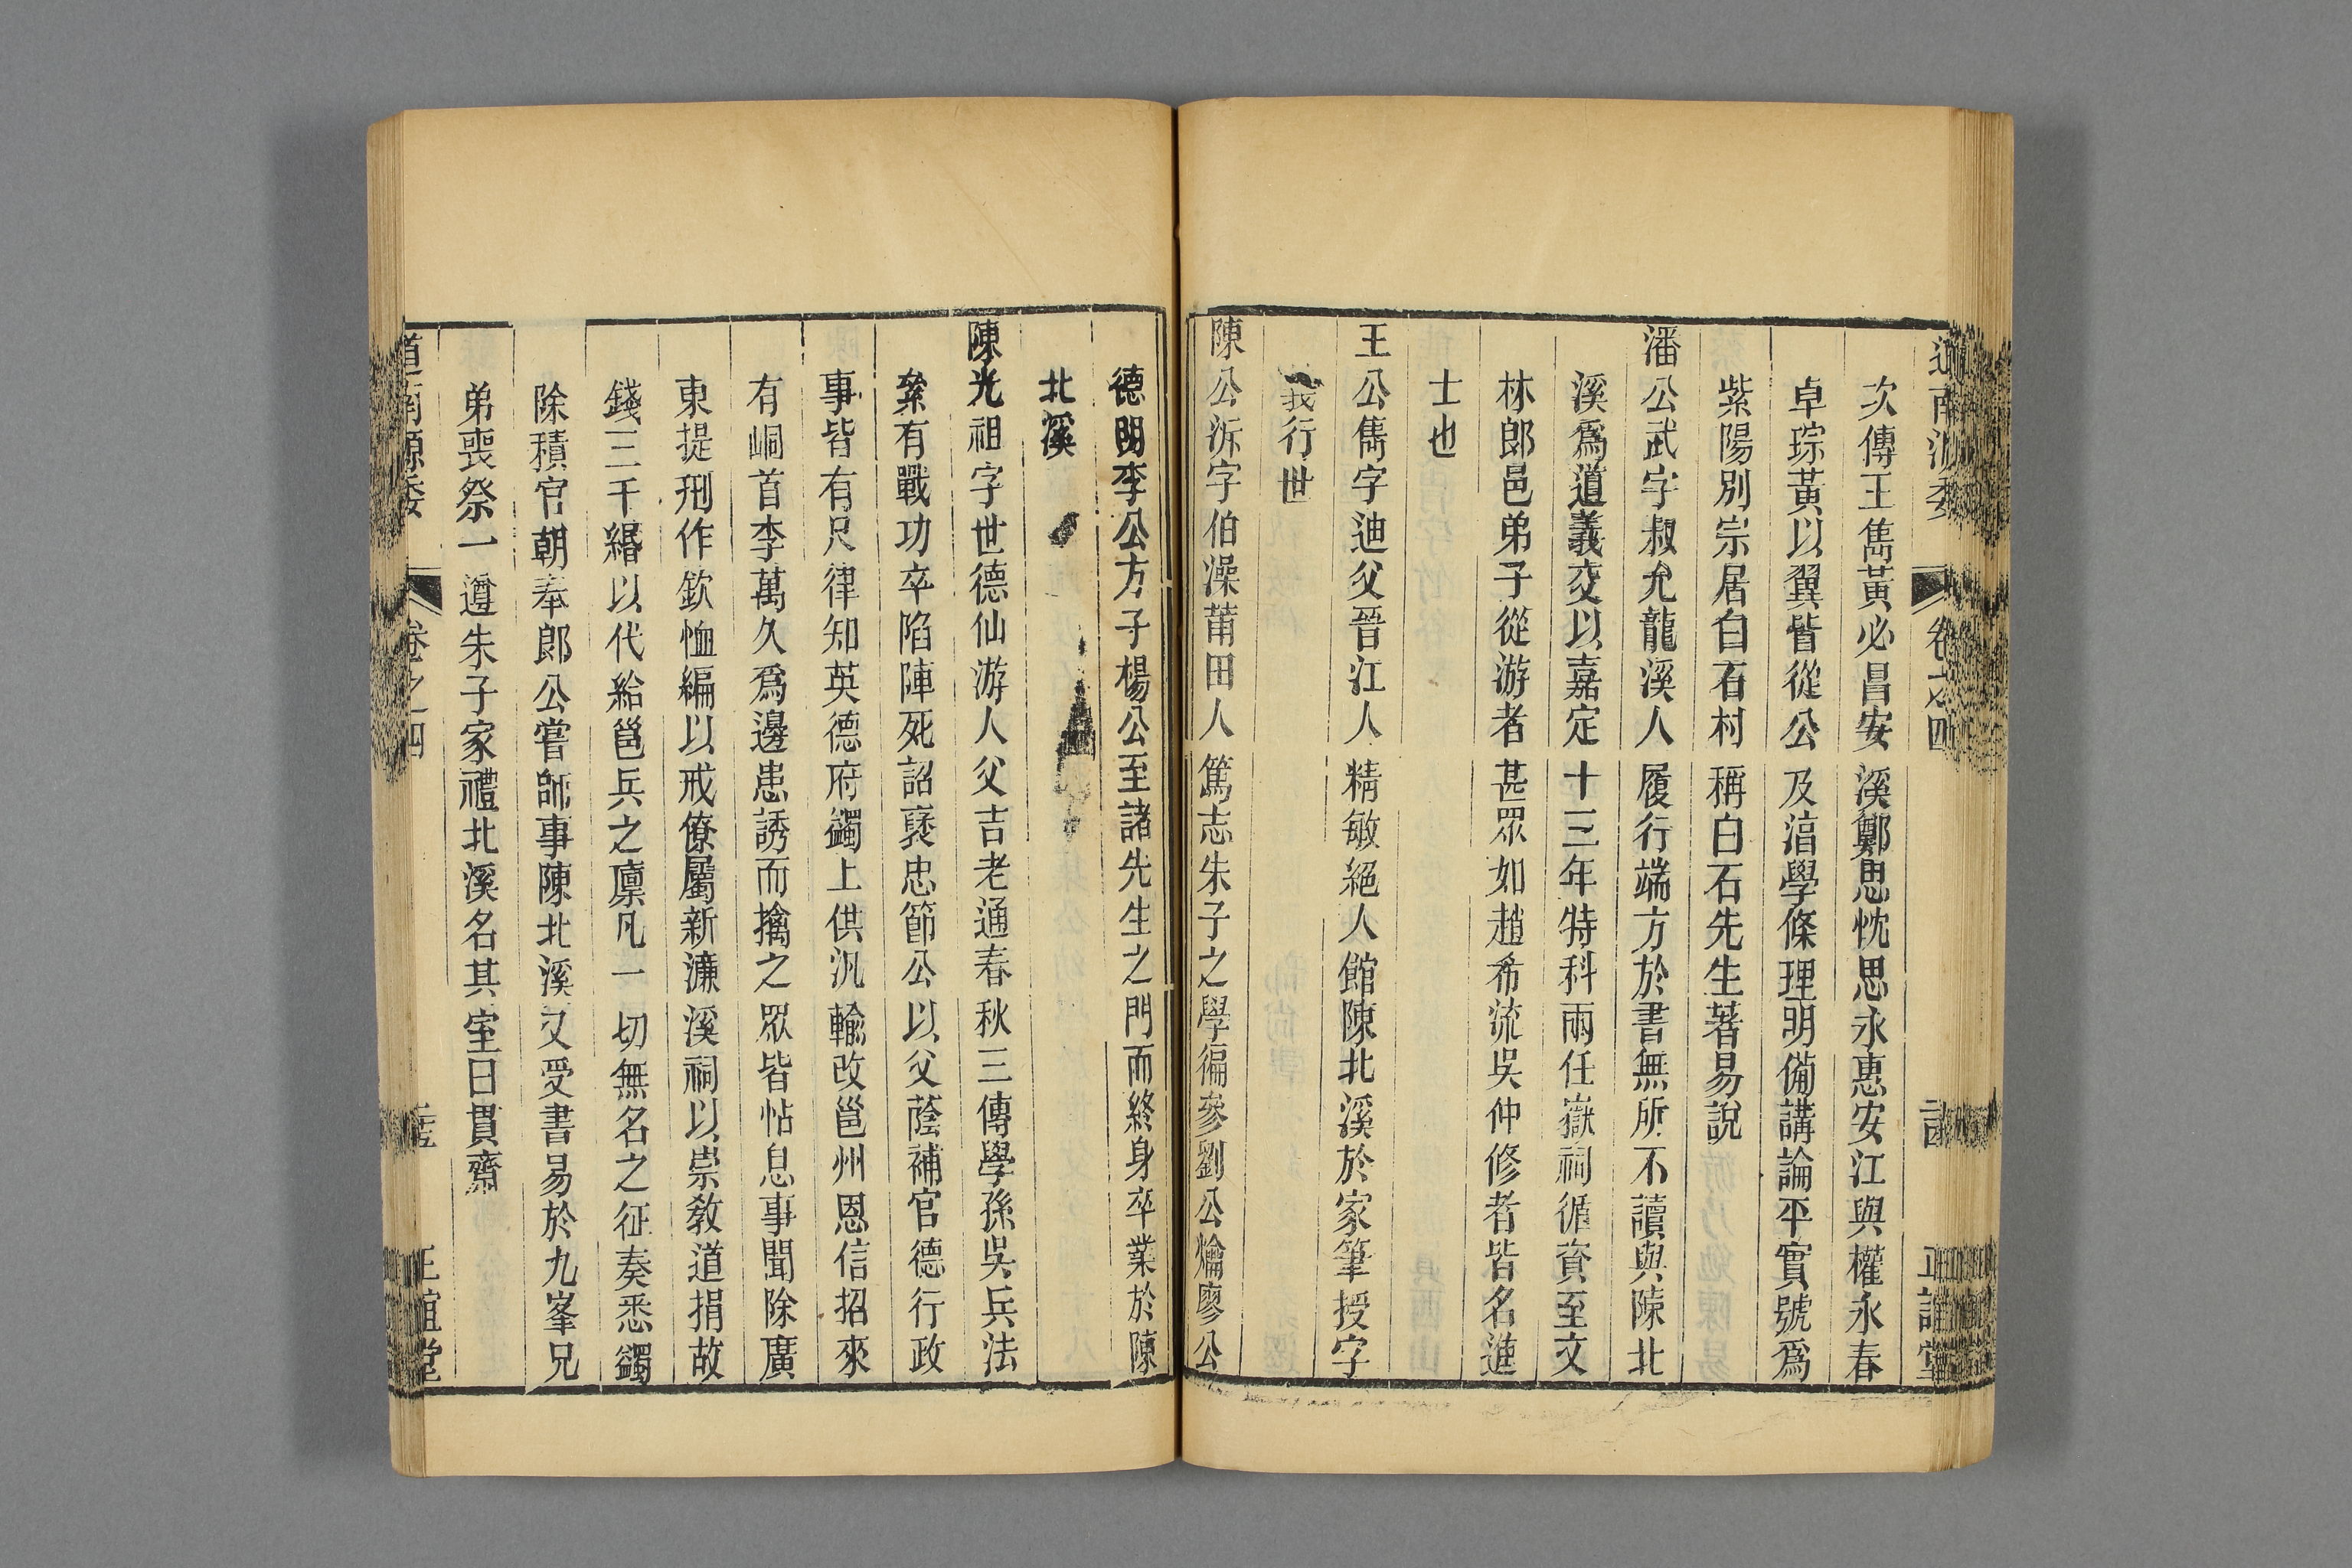 次傳王雋黃必昌安溪鄭思忱思永惠安江與權永春
卓琮黃以翼皆從公及淯學條理明備講論平實號爲
紫陽別宗居白石村稱白石先生著易說
潘公武字叔允龍溪人履行端方於書無所不讀與陳北
溪爲道義交以嘉定十三年特科兩任嶽祠循資至文
林郎邑弟子從游者甚眾如趙希流吳仲修者皆名進
士也
王公雋字迪父晉江人精敏絕人館陳北溪於家筆授字
義行世
陳公沂字伯澡莆田人篤志朱子之學徧參劉公爚廖公
德明李公方子楊公至諸先生之門而終身卒業於陳
北溪
陳光祖字世德仙游人父吉老通春秋三傳學孫吳兵法
纍有戰功卒陷陣死詔褒忠節公以父蔭補官德行政
事皆有尺律知英德府蠲上供汎輸改邕州恩信招來
有峒首李萬久爲邊患誘而擒之眾皆帖息事聞除廣
東提刑作欽恤編以戒僚屬新濂溪祠以崇教道捐故
錢三千緡以代給邕兵之廩凡一切無名之征奏悉蠲
除積官朝奉郎公嘗師事陳北溪又受書易於九峯兄
弟喪祭一遵朱子家禮北溪名其室曰貫齋
道南源委 卷之四 正誼堂